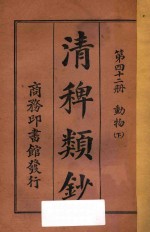 第四十二冊 動物(下)
清稗類鈔
商務印書館發行